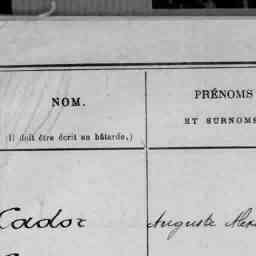 NOM.
(Il doit être écrit en bâtarde.)
PRÉNOMS
ET SURNOMS
Cador
Auguste Alex